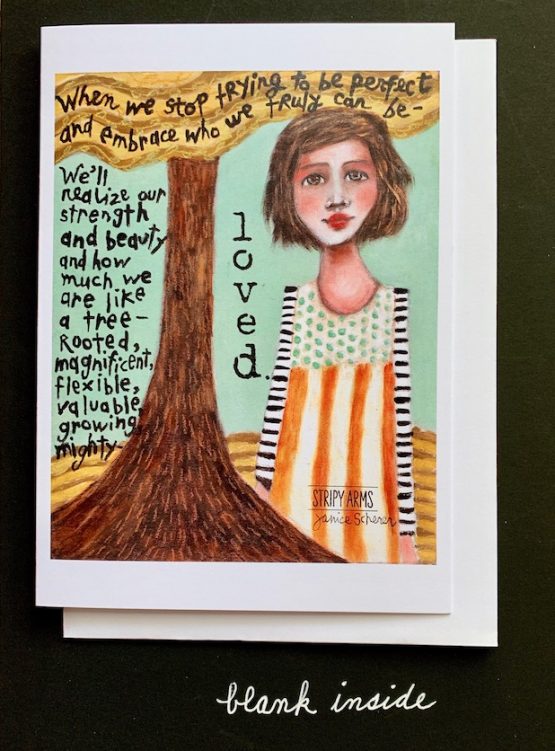 When we stop trying to be perfect
and embrace who we truly can be-
We'll
realize our
strength
and beauty
and how
much we
are like
a tree-
Rooted,
magnificent,
flexible,
valuable,
growing,
mighty-
loved.
STRIPY ARMS
Janice Scherer
blank inside